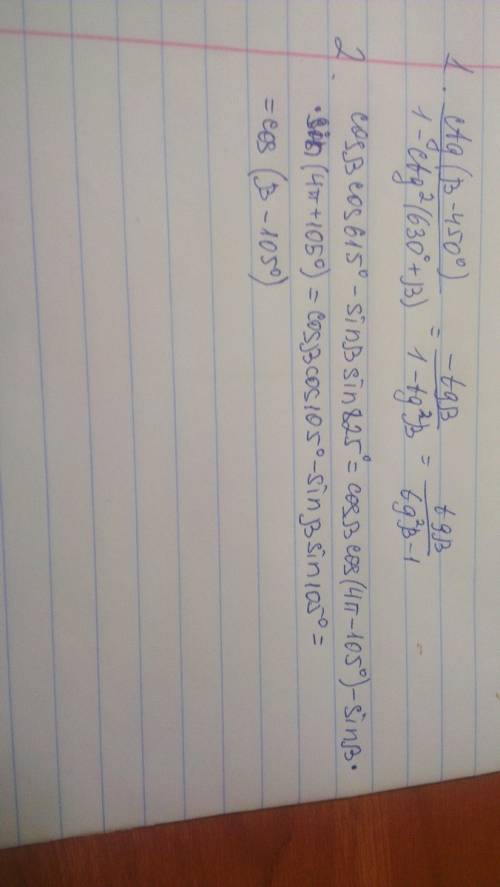 1. ctg(β-450°) / 1-ctg²(630°+β) = -tgβ / 1-tg²β = tgβ / tg²β-1
2. cosβcos615° - sinβsin825° = cosβcos(4π-105°) - sinβ·
·sin(4π+105°) = cosβcos105° - sinβsin105° =
= cos(β-105°)